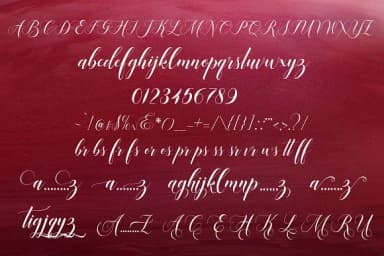 ABCDEFGHIJKLMNOPQRSTUVWXYZ
abcdefghijklmnopqrstuvwxyz
0123456789
br bs fr fs or os pr ps ss sr vr ws tt ff
a........z a......z aghijklmnp.....z, a.......z
tiqjgyz A......Z A C E H K L M R U